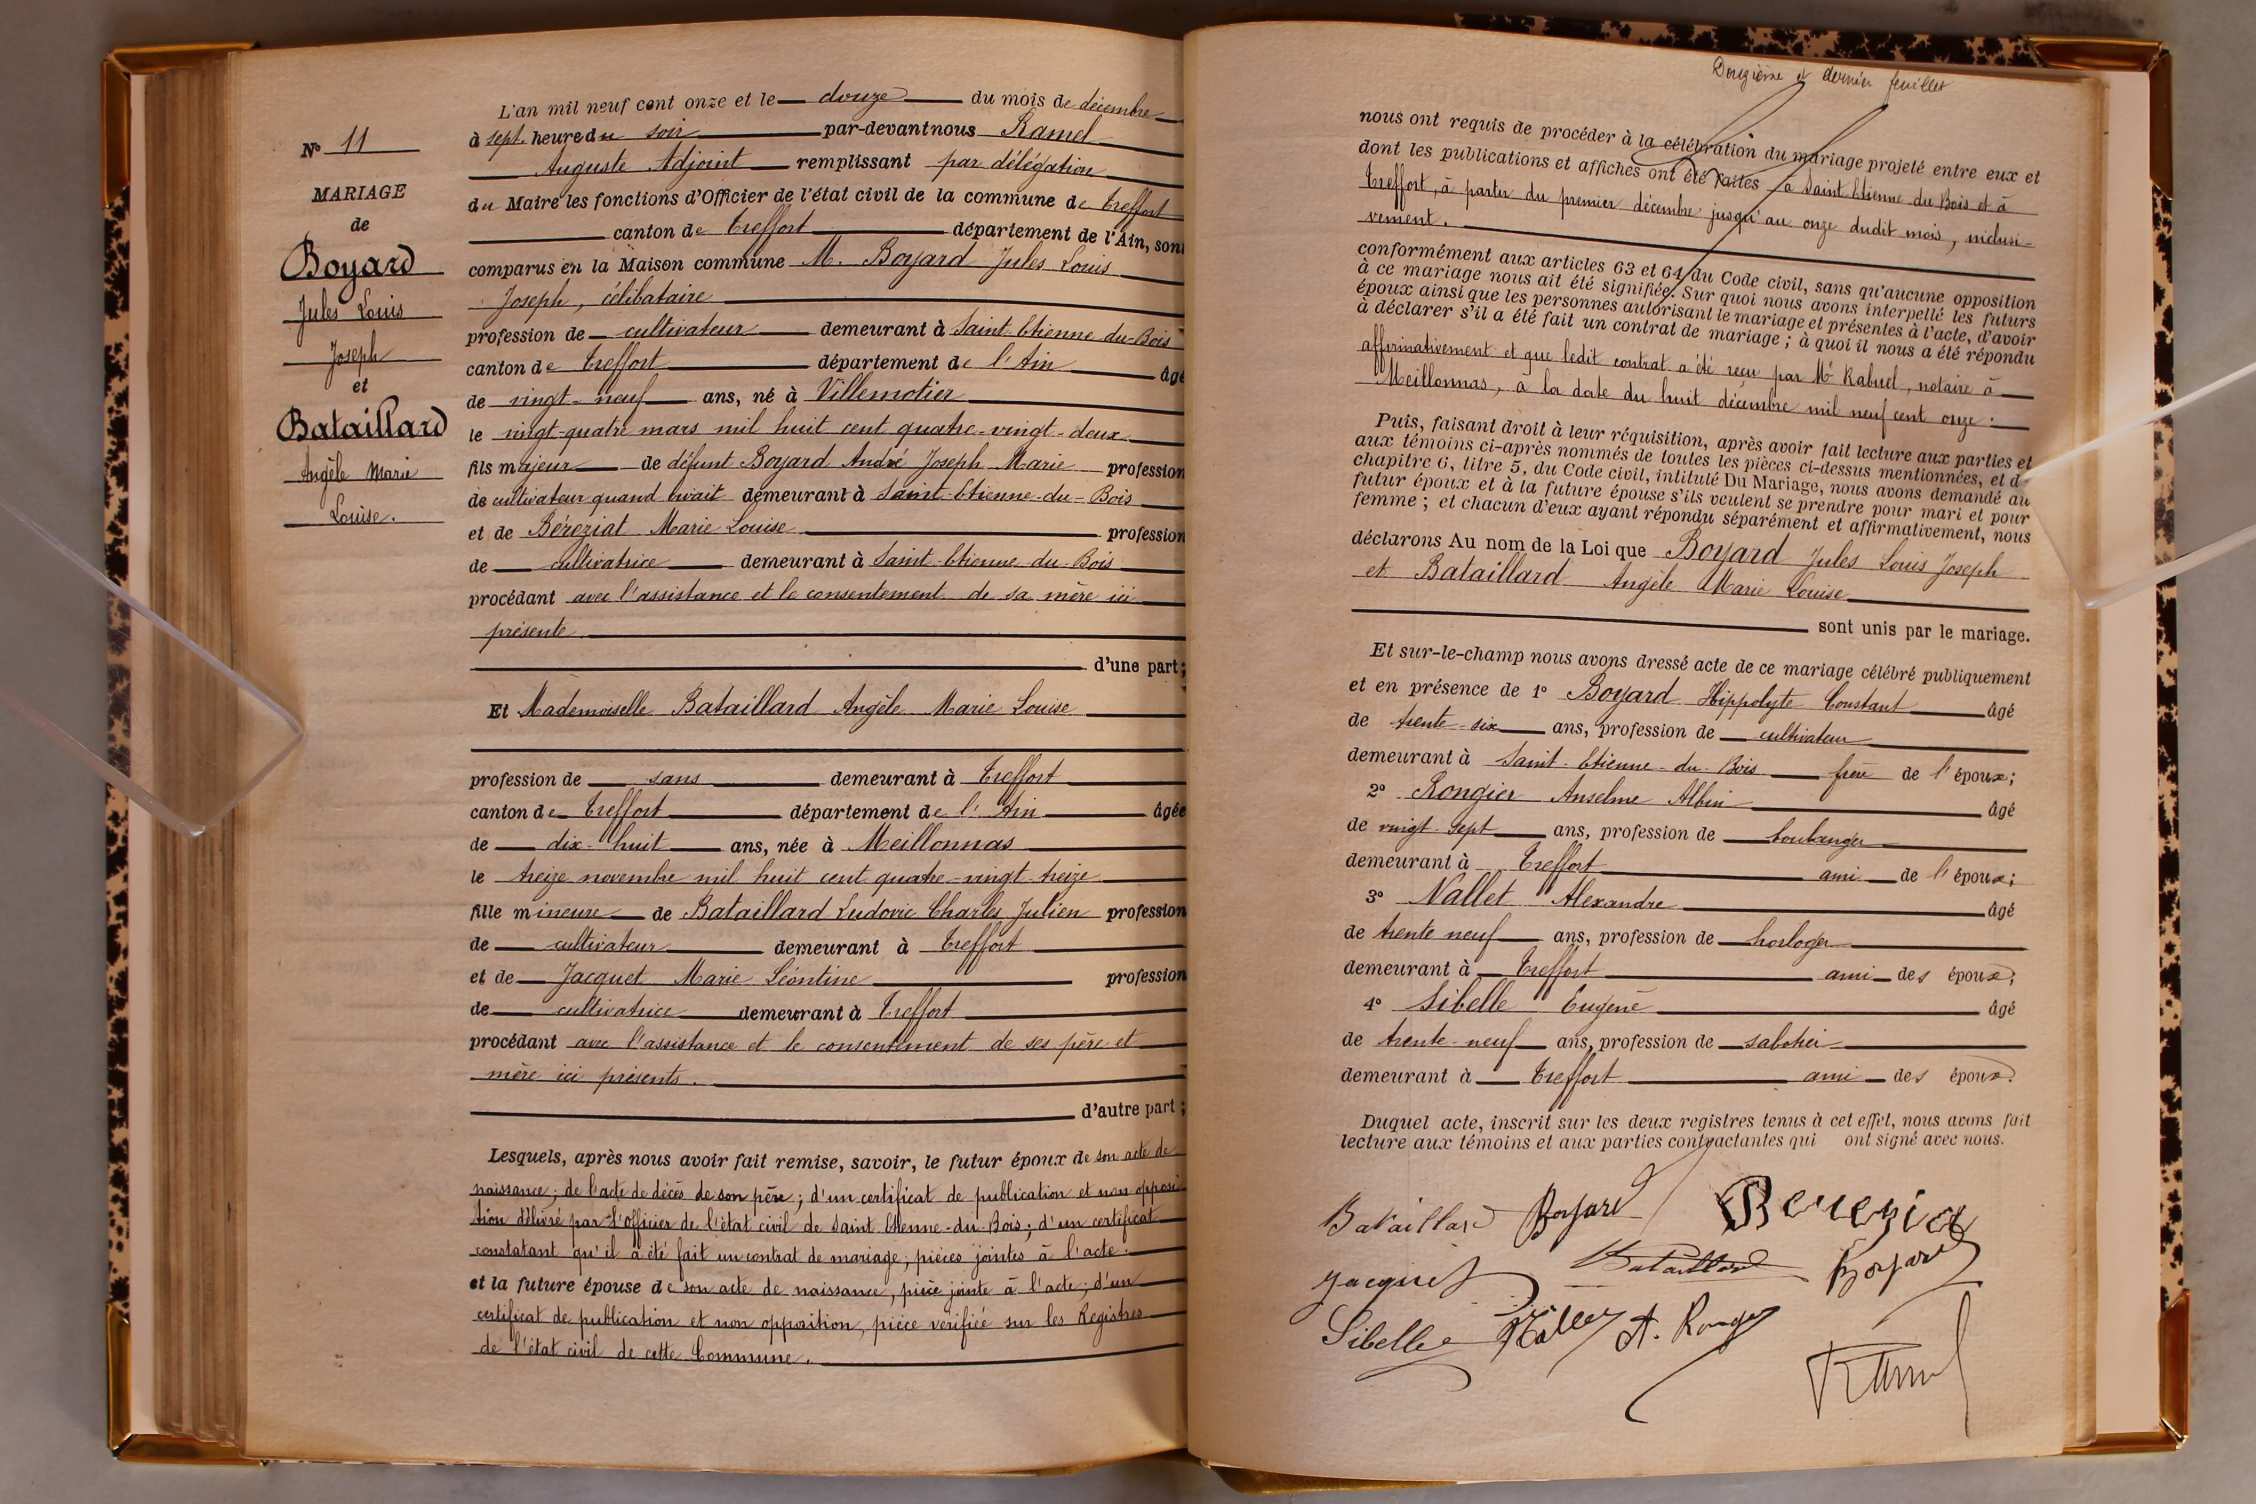 N° 11
MARIAGE
de
Boyard
Jules Louis
Joseph
et
Bataillard
Angèle Marie
Louise.
L'an mil neuf cent onze et le douze du mois de décembre
à sept heure du soir par-devant nous Ramel
Auguste Adjoint remplissant par délégation
du Maire les fonctions d'Officier de l'état civil de la commune de Treffort
canton de Treffort département de l'Ain, sont
comparus en la Maison commune M. Boyard Jules Louis
Joseph, célibataire
profession de cultivateur demeurant à Saint-Etienne-du-Bois
canton de Treffort département de l'Ain âgé
de vingt-neuf ans, né à Villemotier
le vingt-quatre mars mil huit cent quatre-vingt-deux
fils majeur de défunt Boyard André Joseph Marie profession
de cultivateur quand vivait demeurant à Saint-Etienne-du-Bois
et de Béreziat Marie Louise profession
de cultivatrice demeurant à Saint-Etienne-du-Bois
procédant avec l'assistance et le consentement de sa mère ici
présente
d'une part;
Et Mademoiselle Bataillard Angèle Marie Louise
profession de sans demeurant à Treffort
canton de Treffort département de l'Ain âgée
de dix-huit ans, née à Meillonnas
le treize novembre mil huit cent quatre-vingt-treize
fille mineure de Bataillard Ludovic Charles Julien profession
de cultivateur demeurant à Treffort
et de Jacquet Marie Léontine profession
de cultivatrice demeurant à Treffort
procédant avec l'assistance et le consentement de ses père et
mère ici présents.
d'autre part;
Lesquels, après nous avoir fait remise, savoir, le futur époux de son acte de
naissance; de l'acte de décès de son père; d'un certificat de publication et non opposi-
tion délivré par l'officier de l'état civil de Saint Etienne-du-Bois; d'un certificat
constatant qu'il a été fait un contrat de mariage; pièces jointes à l'acte.
et la future épouse de son acte de naissance, pièce jointe à l'acte; d'un
certificat de publication et non opposition, pièce vérifiée sur les Registres
de l'état civil de cette Commune.
Douzième et dernier feuillet
nous ont requis de procéder à la célébration du mariage projeté entre eux et
dont les publications et affiches ont été faites à Saint Etienne du Bois et à
Treffort, à partir du premier décembre jusqu'au onze dudit mois, inclusi-
vement.
conformément aux articles 63 et 64 du Code civil, sans qu'aucune opposition
à ce mariage nous ait été signifiée. Sur quoi nous avons interpellé les futurs
époux ainsi que les personnes autorisant le mariage et présentes à l'acte, d'avoir
à déclarer s'il a été fait un contrat de mariage; à quoi il nous a été répondu
affirmativement et que ledit contrat a été reçu par Me Rabuel, notaire à
Meillonnas, à la date du huit décembre mil neuf cent onze.
Puis, faisant droit à leur réquisition, après avoir fait lecture aux parties et
aux témoins ci-après nommés de toutes les pièces ci-dessus mentionnées, et du
chapitre 6, titre 5, du Code civil, intitulé Du Mariage, nous avons demandé au
futur époux et à la future épouse s'ils veulent se prendre pour mari et pour
femme; et chacun d'eux ayant répondu séparément et affirmativement, nous
déclarons Au nom de la Loi que Boyard Jules Louis Joseph
et Bataillard Angèle Marie Louise
sont unis par le mariage.
Et sur-le-champ nous avons dressé acte de ce mariage célébré publiquement
et en présence de 1° Boyard Hippolyte Constant âgé
de trente-six ans, profession de cultivateur
demeurant à Saint-Etienne-du-Bois frère de l'époux;
2° Rongier Anselme Albin âgé
de vingt-sept ans, profession de boulanger
demeurant à Treffort ami de l'époux;
3° Nallet Alexandre âgé
de trente neuf ans, profession de horloger
demeurant à Treffort ami des époux;
4° Sibelle Eugène âgé
de trente-neuf ans, profession de sabotier
demeurant à Treffort ami des époux.
Duquel acte, inscrit sur les deux registres tenus à cet effet, nous avons fait
lecture aux témoins et aux parties contractantes qui ont signé avec nous.
Bataillard Boyard Bereziat
Jacquet Bataillard Boyard
Sibelle Nallet A. Rongier
Ramel